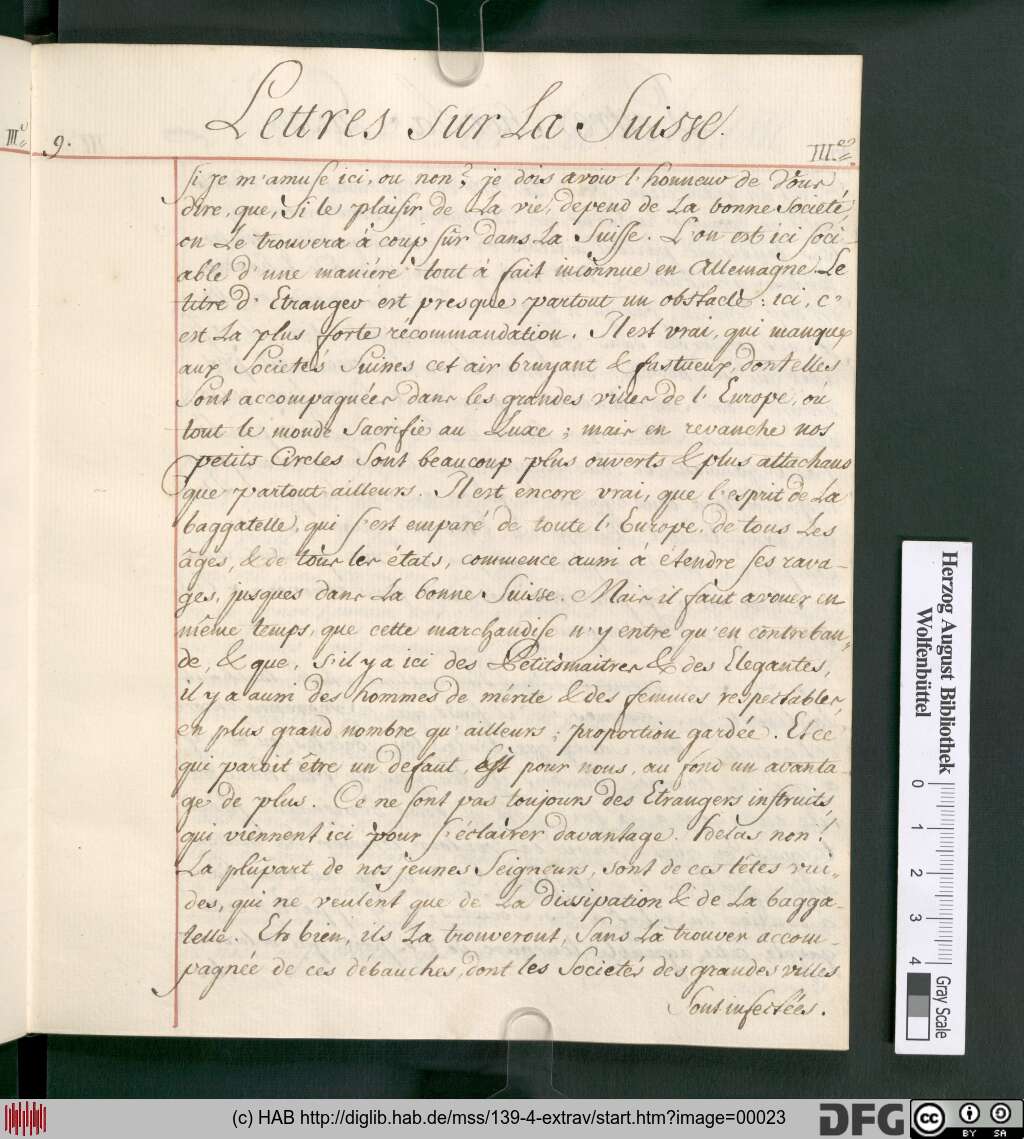 Lettres sur La Suisse.
III.e
9.
III.e
si je m'amuse ici, ou non? je dois avoir l'honneur de Vous
dire, que, Si le plaisir de La vie, depend de La bonne Societé,
on Le trouvera à coup sûr dans La Suisse. L'on est ici soci-
able d'une maniére tout á fait inconnue en Allemagne. Le
titre d'Etranger est presque partout un obstacle; ici, c'
est La plus forte récommandation. Il est vrai, qui manque
aux Societés Suisses cet air bruyant & fastueux, dont elles
Sont accompagnées dans les grandes villes de l'Europe, où
tout le monde Sacrifie au Luxe; mais en revanche nos
petits Circles Sont beaucoup plus ouverts & plus attachans
que partout ailleurs. Il est encore vrai, que l'esprit de La
baggatelle, qui s'est emparé de toute l'Europe, de tous Les
âges, & de tous les états, commence aussi à étendre ses rava-
ges, jusques dans La bonne Suisse. Mais il faut avouer en
même temps, que cette marchandise n'y entre qu'en contreban-
de, & que, s'il y a ici des Petitsmaitres & des Elegantes,
il y a aussi des hommes de mérite & des femmes respectables,
en plus grand nombre qu'ailleurs; proportion gardée. Et ce
qui paroit être un defaut, est pour nous, au fond un avanta-
ge de plus. Ce ne sont pas toujours des Etrangers instruits,
qui viennent ici pour s'éclairer davantage. Helas non!
La plûpart de nos jeunes Seigneurs, sont de ces têtes vui-
des, qui ne veulent que de La dissipation & de La bagga-
telle. Eh bien, ils La trouveront, Sans La trouver accom-
pagnée de ces débauches, dont les Societés des grandes villes
Sont infectées.
Herzog August Bibliothek
Wolfenbüttel
0 1 2 3 4
Gray Scale
(c) HAB http://diglib.hab.de/mss/139-4-extrav/start.htm?image=00023
DFG
cc BY SA